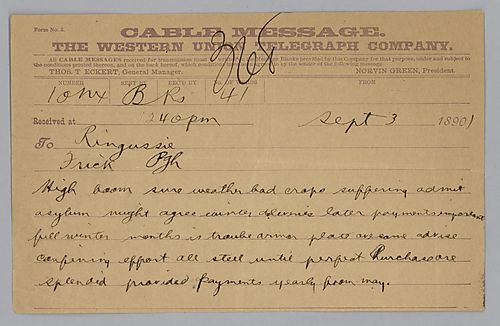 Form No. 2.
CABLE MESSAGE.
THE WESTERN UNION TELEGRAPH COMPANY.
All CABLE MESSAGES received for transmission must be written on the Message Blanks provided by this Company for that purpose, under and subject to
the conditions printed thereon, and on the back hereof, which conditions have been agreed to by the sender of the following message.
THOS. T. ECKERT, General Manager. NORVIN GREEN, President.
NUMBER SENT BY REC'D BY FROM
10 B Rs 41
Received at 240pm Sept 3 1890
To Ringussie
Frick Pgh
High boom sure weather bad crops suffering admit
asylum might agree deliveries later payments important
full winter months is trouble armor place awsome advise
confining effort all steel until perfect Purchase ore
splendid provided payments yearly from may.